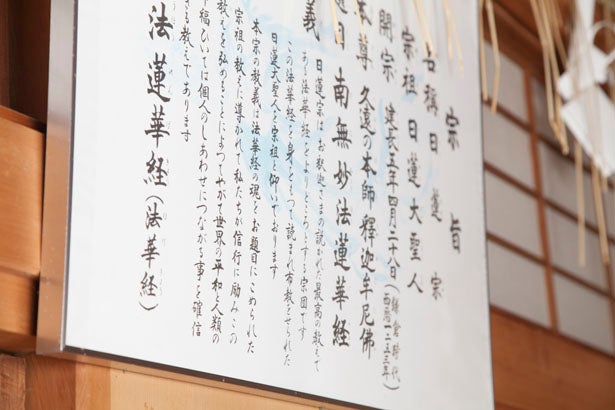 宗旨
名称 日蓮宗
宗祖 日蓮大聖人
開宗 建長五年四月二十八日(鎌倉時代 西暦一二五三年)
本尊 久遠の本師釋迦牟尼佛
題目 南無妙法蓮華経
義 日蓮宗はお釈迦さまの説かれた最高の教えで
ある法華経をよりどころとする宗団です
この法華経を身をもって読まれ布教をせられた
日蓮大聖人を宗祖と仰いでおります
本宗の教義は法華経の魂をお題目にこめられた
宗祖の教えに導かれて私たちが信行に励みこの
教えを弘めることによってやがて世界の平和と人類の
幸福ひいては個人のしあわせにつながる事を確信
する教えであります
法蓮華経(法華経)